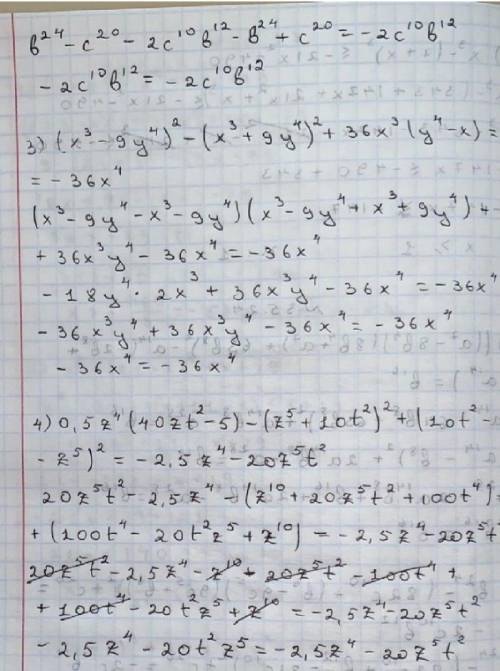 b²⁴ - c²⁰ - 2c¹⁰b¹² - b²⁴ + c²⁰ = -2c¹⁰b¹²
-2c¹⁰b¹² = -2c¹⁰b¹²
3) (x³ - 9y⁴)² - (x³ + 9y⁴)² + 36x³(y⁴ - x) =
= -36x⁴
(x³ - 9y⁴ - x³ - 9y⁴)(x³ - 9y⁴ + x³ + 9y⁴) +
+ 36x³y⁴ - 36x⁴ = -36x⁴
-18y⁴ · 2x³ + 36x³y⁴ - 36x⁴ = -36x⁴
-36x³y⁴ + 36x³y⁴ - 36x⁴ = -36x⁴
-36x⁴ = -36x⁴
4) 0,5z⁴(40zt² - 5) - (z⁵ + 10t²)² + (10t² -
- z⁵)² = -2,5z⁴ - 20z⁵t²
20z⁵t² - 2,5z⁴ - (z¹⁰ + 20z⁵t² + 100t⁴)
+ (100t⁴ - 20t²z⁵ + z¹⁰) = -2,5z⁴ - 20z⁵t²
20z⁵t² - 2,5z⁴ - z¹⁰ - 20z⁵t² - 100t⁴ +
+ 100t⁴ - 20t²z⁵ + z¹⁰ = -2,5z⁴ - 20z⁵t²
-2,5z⁴ - 20t²z⁵ = -2,5z⁴ - 20z⁵t²